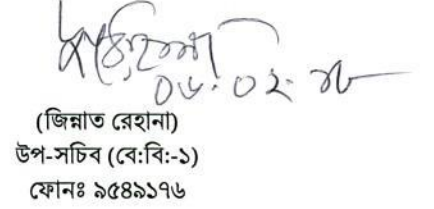 ০৬.০২.১৮
(জিন্নাত রেহানা)
উপ-সচিব (বে:বি:-১)
ফোনঃ ৯৫৪৯১৭৬